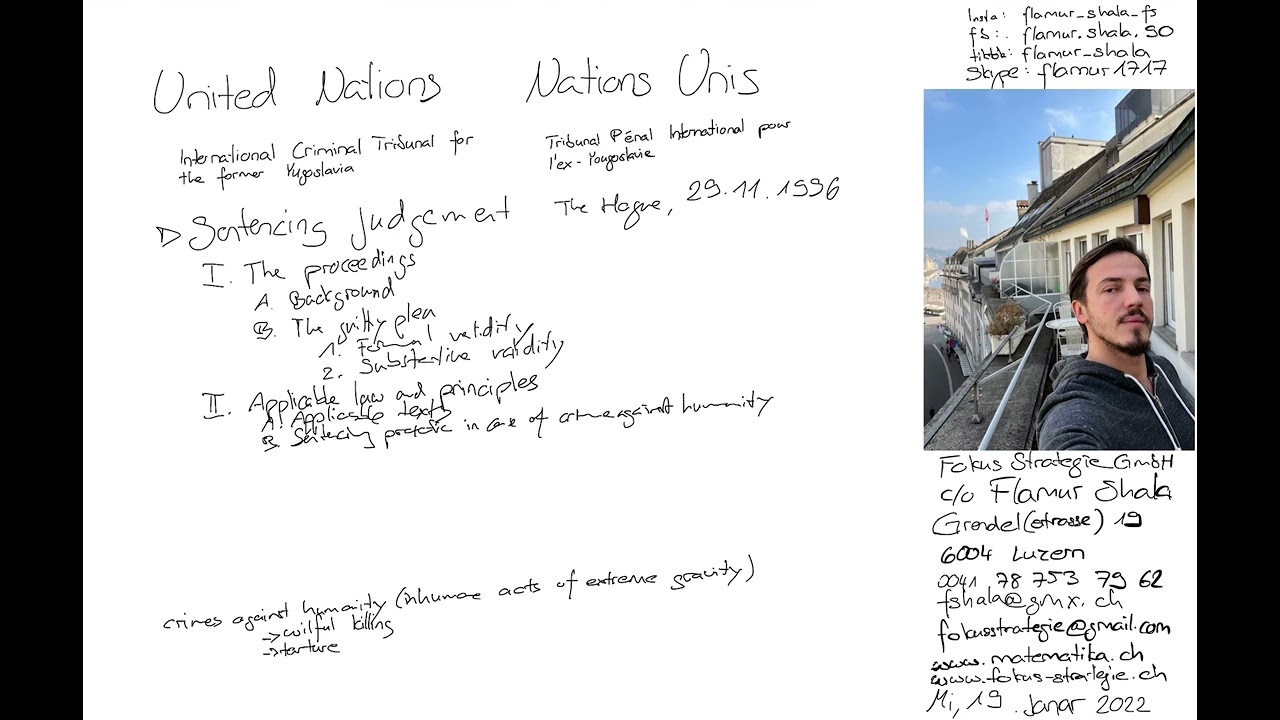 United Nations Nations Unis
International Criminal Tribunal for
the former Yugoslavia
Tribunal Pénal International pour
l'ex-Yougoslavie
▷ Sentencing judgement The Hague, 29.11.1996
I. The proceedings
A. Background
B. The guilty plea
1. Formal validity
2. Substantive validity
II. Applicable law and principles
A. Applicable texts
B. Sentencing practice in case of crime against humanity
crimes against humanity (inhumane acts of extreme gravity)
→ wilful killing
→ torture
Insta: flamur_shala_fs
fb: flamur.shala.90
tiktok: flamur_shala
Skype: flamur1717
Fokus Strategie GmbH
c/o Flamur Shala
Grendel(strasse) 19
6004 Luzern
0041 78 753 79 62
fshala@gmx.ch
fokusstrategie@gmail.com
www.matematika.ch
www.fokus-strategie.ch
Mi, 19. Janar 2022